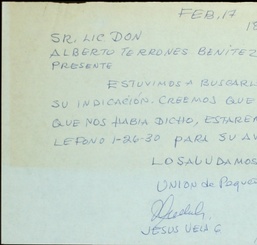 FEB, 17
18
SR. LIC DON
ALBERTO TERRONES BENÍTEZ
PRESENTE
ESTUVIMOS A BUSCARL
SU INDICACIÓN. CREEMOS QUE
QUE NOS HABIA DICHO, ESTAREM
LEFONO 1-26-30 PARA SU AV
LO SALUDAMOS
UNION de Peque
JESUS VELA G